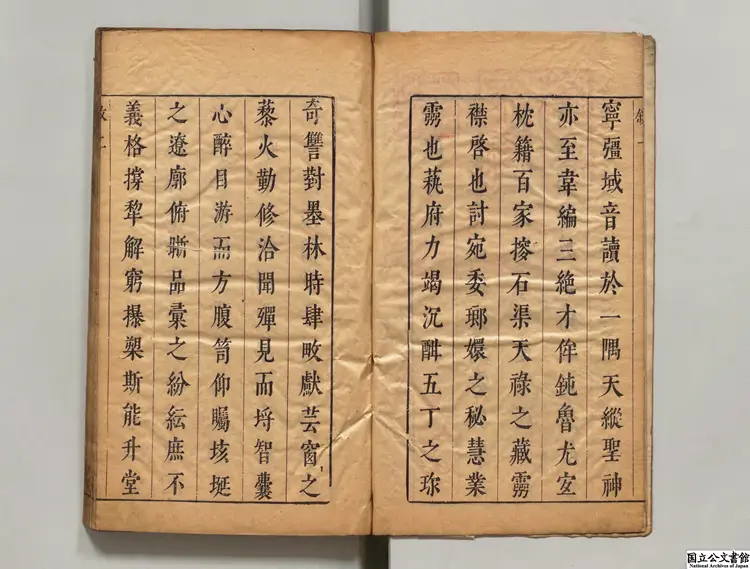 寧彊域音讀於一隅天縱聖神
亦至韋編三絶才侔鈍魯尤宜
枕籍百家㨿石渠天祿之藏霶
襟啓也討宛委瑯嬛之秘慧業
霶也蓺府力竭沉酣五丁之珎
奇讐對墨林時肆畋獻芸窗之
藜火勤修洽聞殫見而埒智囊
心醉目游而方腹笥仰矚垓埏
之遼廓俯晣品彙之紛紜庶不
義格撐犂解窮㩧槊斯能升堂
敘一
敘二
国立公文書館
National Archives of Japan